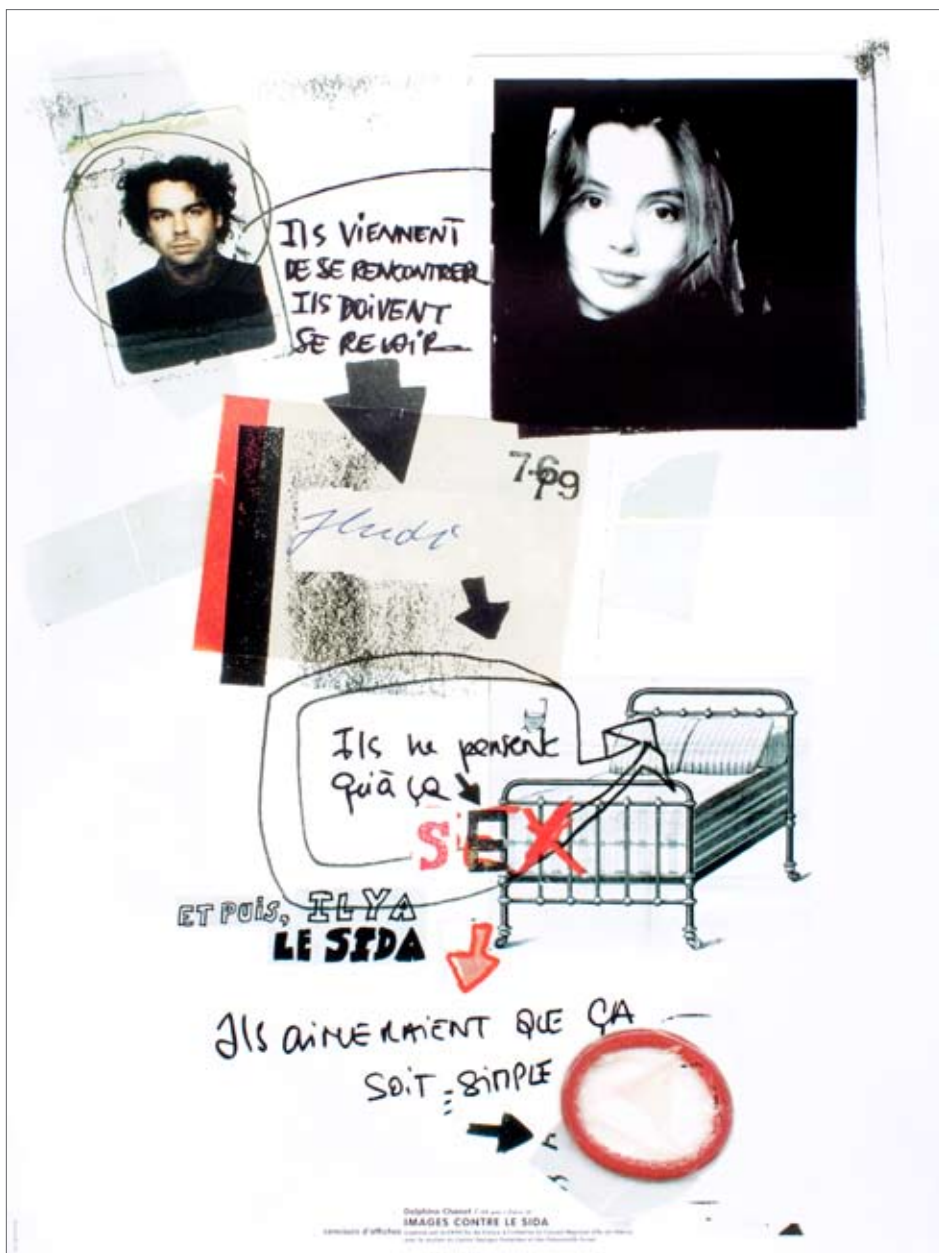 Ils VIENNENT
DE SE RENCONTRER
Ils DOIVENT
SE REVOIR
7 69
Jeudi
Ils ne pensent
qu'à ça
SEX
ET PUIS, IL Y A
LE SIDA
Ils AIMERAIENT QUE ÇA
SOIT SIMPLE
Delphine Chanet
IMAGES CONTRE LE SIDA
concours d'affiches